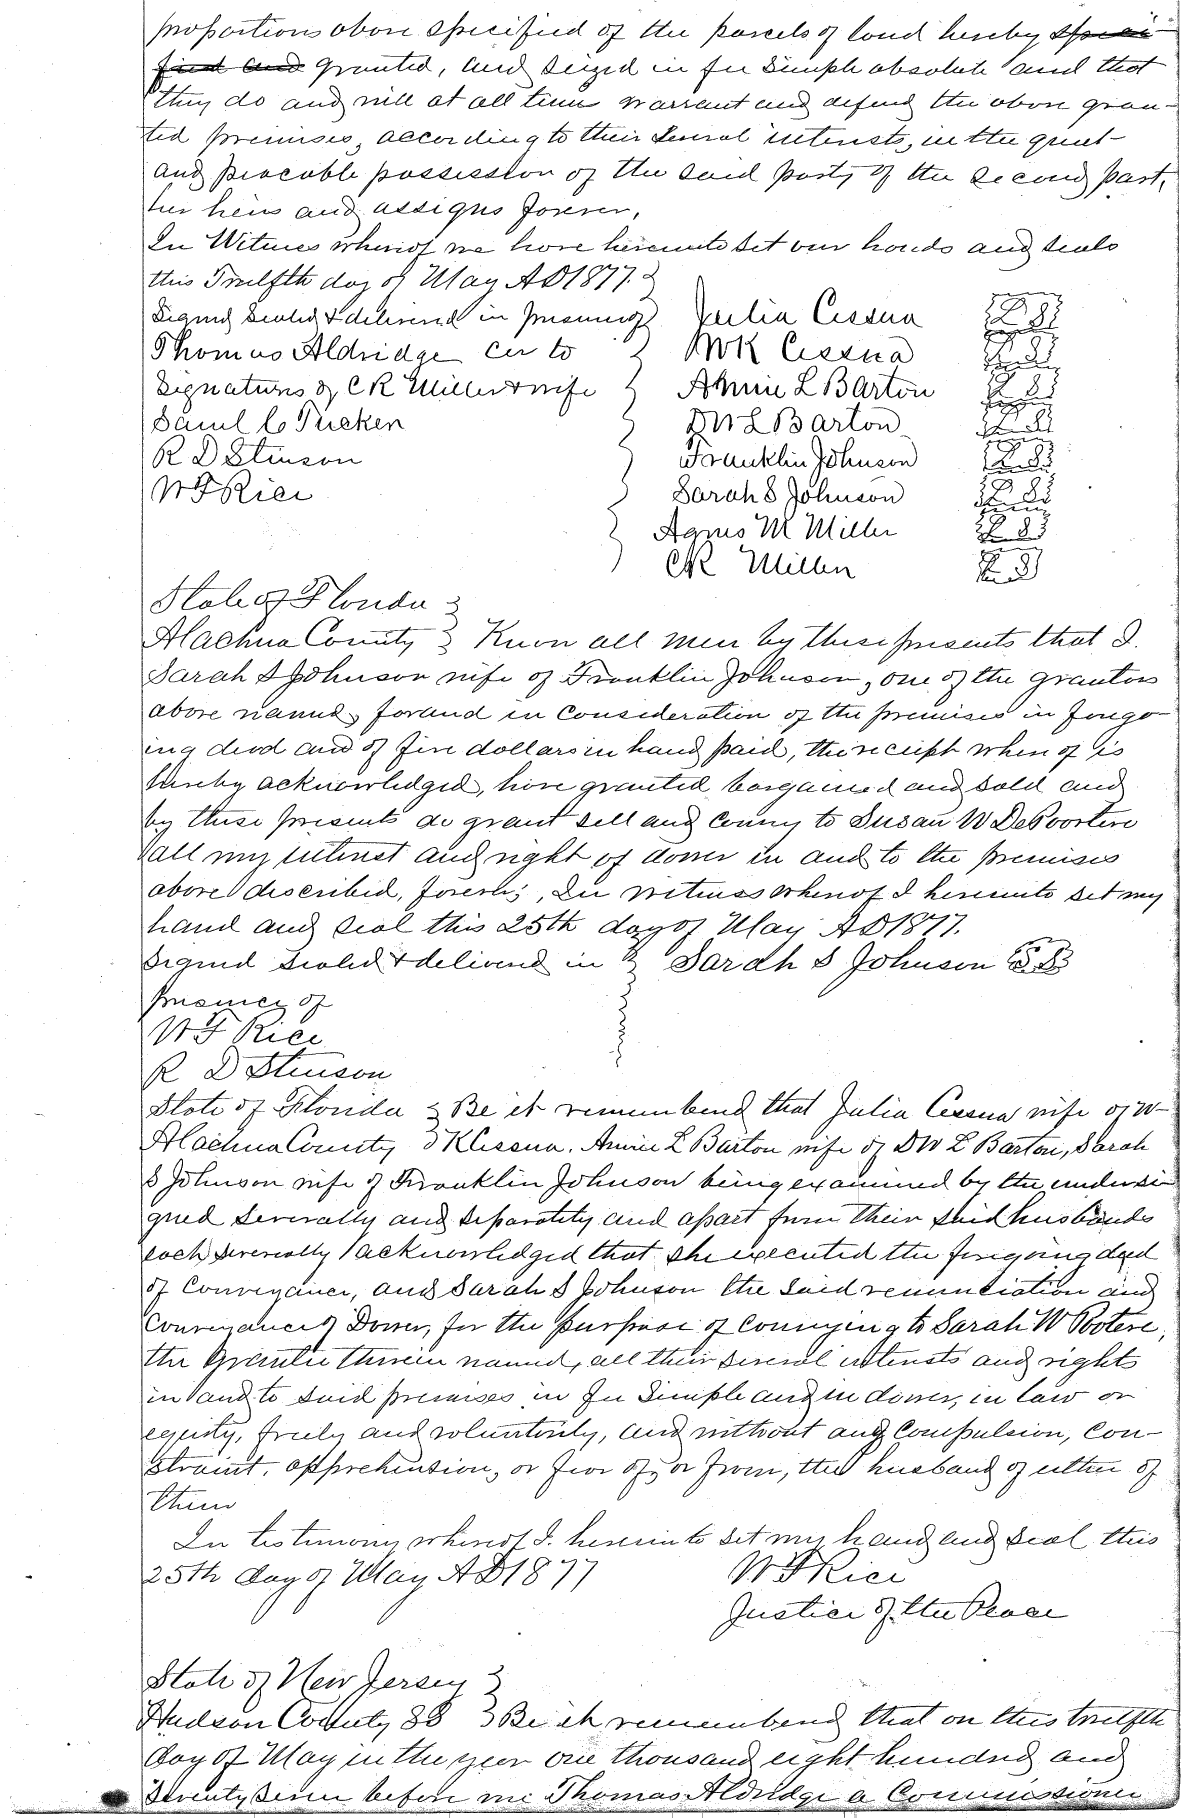 proportions above specified of the parcels of land hereby speci-
fied and granted, and seized in fee simple absolute and that
they do and will at all time warrant and defend the above gran-
ted premises, according to their several interests, in the quiet
and peacable possession of the said party of the second part,
her heirs and assigns forever,
In Witness whereof we have hereunto set our hands and seals
this Twelfth day of May AD 1877.
Signed Sealed & delivered in presence of Julia Cessna L S
Thomas Aldridge as to W K Cessna L S
Signatures of C R Miller & wife Annie L Barton L S
Saml C Tucker D W L Barton L S
R D Stinson Franklin Johnson L S
W F Rice Sarah S Johnson L S
Agnes M Miller L S
C R Miller L S
State of Florida
Alachua County Know all men by these presents that I.
Sarah S Johnson wife of Franklin Johnson, one of the grantors
above named, for and in consideration of the premises in forego
ing deed and of five dollars in hand paid, the receipt whereof is
hereby acknowledged, have granted bargained and sold and
by these presents do grant sell and convey to Susan W DePoostere
all my interest and right of dower in and to the premises
above described, forever, In witness whereof I hereunto set my
hand and seal this 25th day of May AD 1877.
Signed Sealed & delivered in Sarah S Johnson L S
presence of
W F Rice
R D Stinson
State of Florida Be it remembered that Julia Cessna wife of W
Alachua County K Cessna. Annie L Barton wife of D W L Barton, Sarah
S Johnson wife of Franklin Johnson being examined by the undersi
gned severally and separately and apart from their said husbands
each severally acknowledged that she executed the foregoing deed
of Conveyance, and Sarah S Johnson the said renunciation and
Conveyance of Dower, for the purpose of conveying to Sarah W Pootere,
the Grantee therein named, all their several interests and rights
in and to said premises in fee simple and in dower, in law or
equity, freely and voluntarily, and without any compulsion, con-
straint, apprehension, or fear of, or from, the husband of either of
them
In testimony whereof I. hereunto set my hand and seal this
25th day of May AD 1877 W F Rice
Justice of the Peace
State of New Jersey
Hudson County SS Be it remembered that on this twelfth
day of May in the year one thousand eight hundred and
Seventy Seven before me Thomas Aldridge a Commissioner